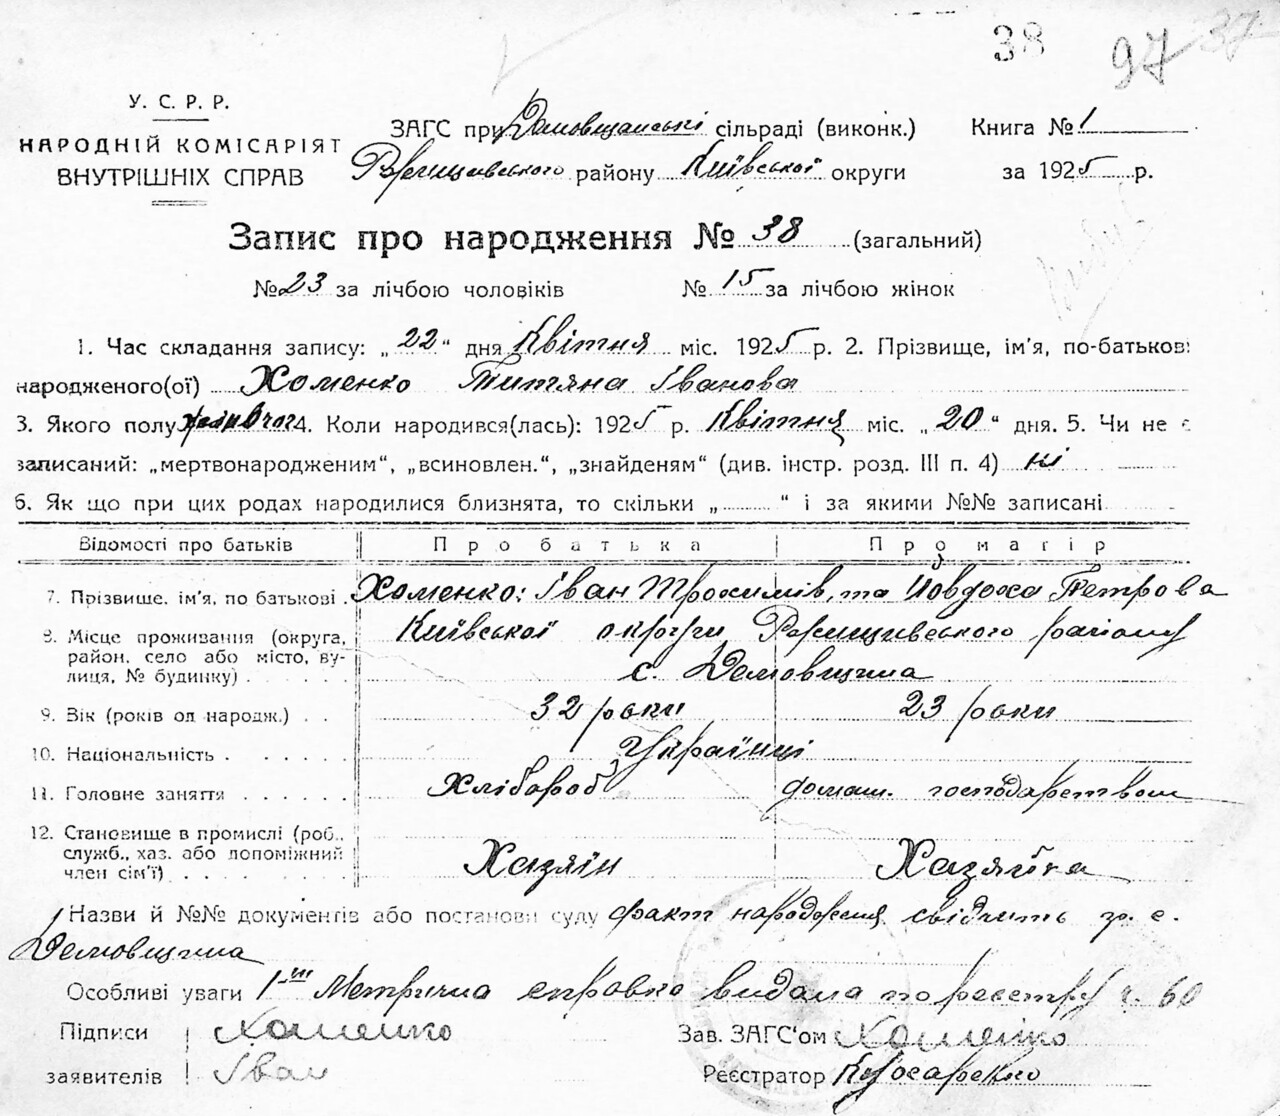 38 97 37
У. С. Р. Р.
НАРОДНІЙ КОМІСАРІЯТ
ВНУТРІШНІХ СПРАВ
ЗАГС при Демовщанські сільраді (виконк.) Книга № 1
Ржищівського району Київської округи за 1925 р.
Запис про народження № 38 (загальний)
№ 23 за лічбою чоловіків № 15 за лічбою жінок
1. Час складання запису: „22“ дня Квітня міс. 1925 р. 2. Прізвище, ім'я, по-батькові
народженого(ої) Хоменко Титяна Іванова
3. Якого полу 4. Коли народився(лась): 1925 р. Квітня міс. „20“ дня. 5. Чи не є
записаний: „мертвонародженим“, „всиновлен.“, „знайденям“ (див. інстр. розд. III п. 4) ні
6. Як що при цих родах народилися близнята, то скільки „ “ і за якими №№ записані
Відомості про батьків Про батька Про матір
7. Прізвище, ім'я, по батькові Хоменко: Іван Трохимів, та Йовдоха Петрова
8. Місце проживання (округа, Київської округи Ржищівського району
район, село або місто, ву-
лиця, № будинку) с. Демовщина
9. Вік (років од народж.) 32 роки 23 роки
10. Національність Українці
11. Головне заняття Хлібароб домаш. господарством
12. Становище в промислі (роб.,
служб., хаз. або допоміжний
член сім'ї) Хазяін Хазяйка
Назви й №№ документів або постанови суду факт народженя свідчить гр. с.
Демовщина
Особливі уваги 1-ш Метрична справка видана по реєстру ч. 60
Підписи Хоменко Зав. ЗАГС'ом Хоменко
заявителів Іван Реєстратор Кучосаренко